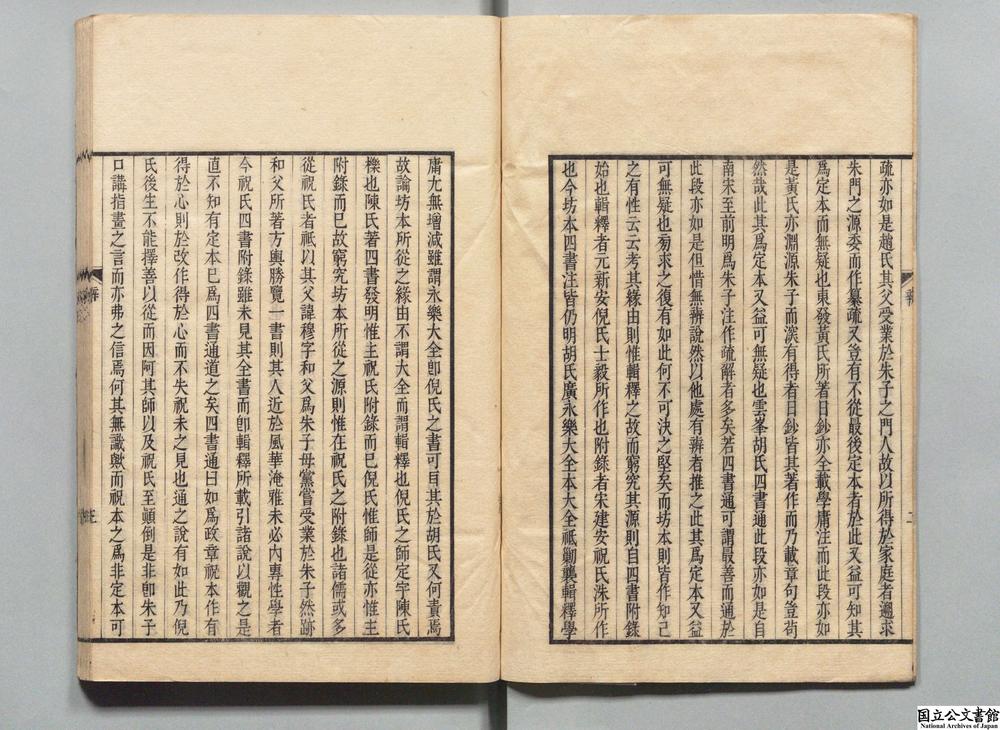 疏亦如是趙氏其父受業於朱子之門人故以所得於家庭者遡求
朱門之源委而作纂疏又豈有不從最後定本者於此又益可知其
爲定本而無疑也東發黃氏所著日鈔亦全載學庸注而此段亦如
是黃氏亦淵源朱子而深有得者日鈔皆其著作而乃載章句豈苟
然哉此其爲定本又益可無疑也雲峯胡氏四書通此段亦如是自
南宋至前明爲朱子注作疏解者多矣若四書通可謂最善而通於
此段亦如是但惜無辨說然以他處有辨者推之此其爲定本又益
可無疑也菊求之復有如此何不可決之堅矣而坊本則皆作知己
之有性云云考其緣由則惟輯釋之故而窮究其源則自四書附錄
始也輯釋者元新安倪氏士毅所作也附錄者宋建安祝氏洙所作
也今坊本四書注皆仍明胡氏廣永樂大全本大全祇勦襲輯釋學
庸尢無增減雖謂永樂大全卽倪氏之書可目其於胡氏又何責焉
故論坊本所從之緣由不謂大全而謂輯釋也倪氏之師定宇陳氏
櫟也陳氏著四書發明惟主祝氏附錄而巳倪氏惟師是從亦惟主
附錄而巳故窮究坊本所從之源則惟在祝氏之附錄也諸儒或多
從祝氏者祇以其父諱穆字和父爲朱子母黨嘗受業於朱子然跡
和父所著方輿勝覽一書則其人近於風華淹雅未必內專性學者
今祝氏四書附錄雖未見其全書而卽輯釋所載引諸說以觀之是
直不知有定本巳爲四書通道之矣四書通曰如爲政章祝本作有
得於心則於改作得於心而不失祝未之見也通之說有如此乃倪
氏後生不能擇善以從而因阿其師以及祝氏至顚倒是非卽朱子
口講指畫之言而亦弗之信焉何其無識歟而祝本之爲非定本可
国立公文書館
National Archives of Japan